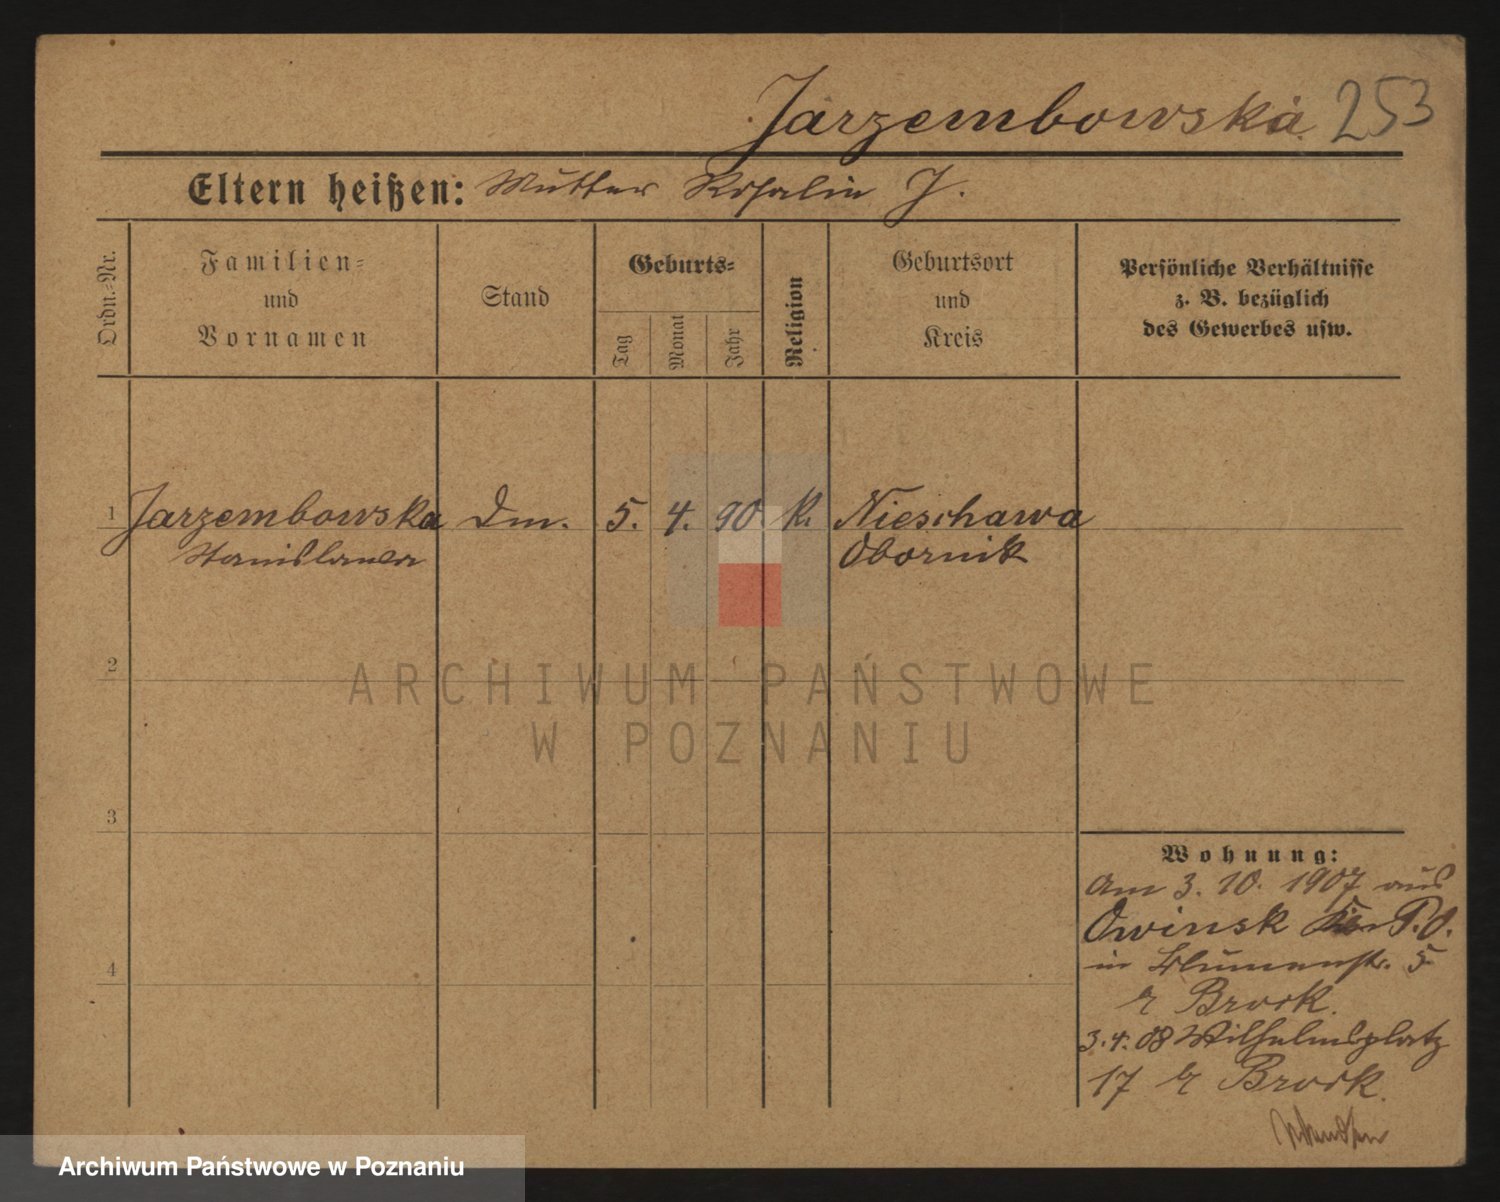 Jarzembowska 253
Eltern heißen: Mutter Rosalie J.
Ordn.-Nr.
Familien-
und
Vornamen
Stand
Geburts-
Tag
Monat
Jahr
Religion
Geburtsort
und
Kreis
Persönliche Verhältnisse
z. B. bezüglich
des Gewerbes usw.
1 Jarzembowska Dm. 5. 4. 90 k. Nieschawa
Stanislawa Obornik
2
ARCHIWUM PAŃSTWOWE
W POZNANIU
3
4
Wohnung:
Am 3. 10. 1907 aus
Owinsk P.O.
in Blumenstr. 5
b Brock.
3.4.08 Wilhelmsplatz
17 b Brock.
Archiwum Państwowe w Poznaniu